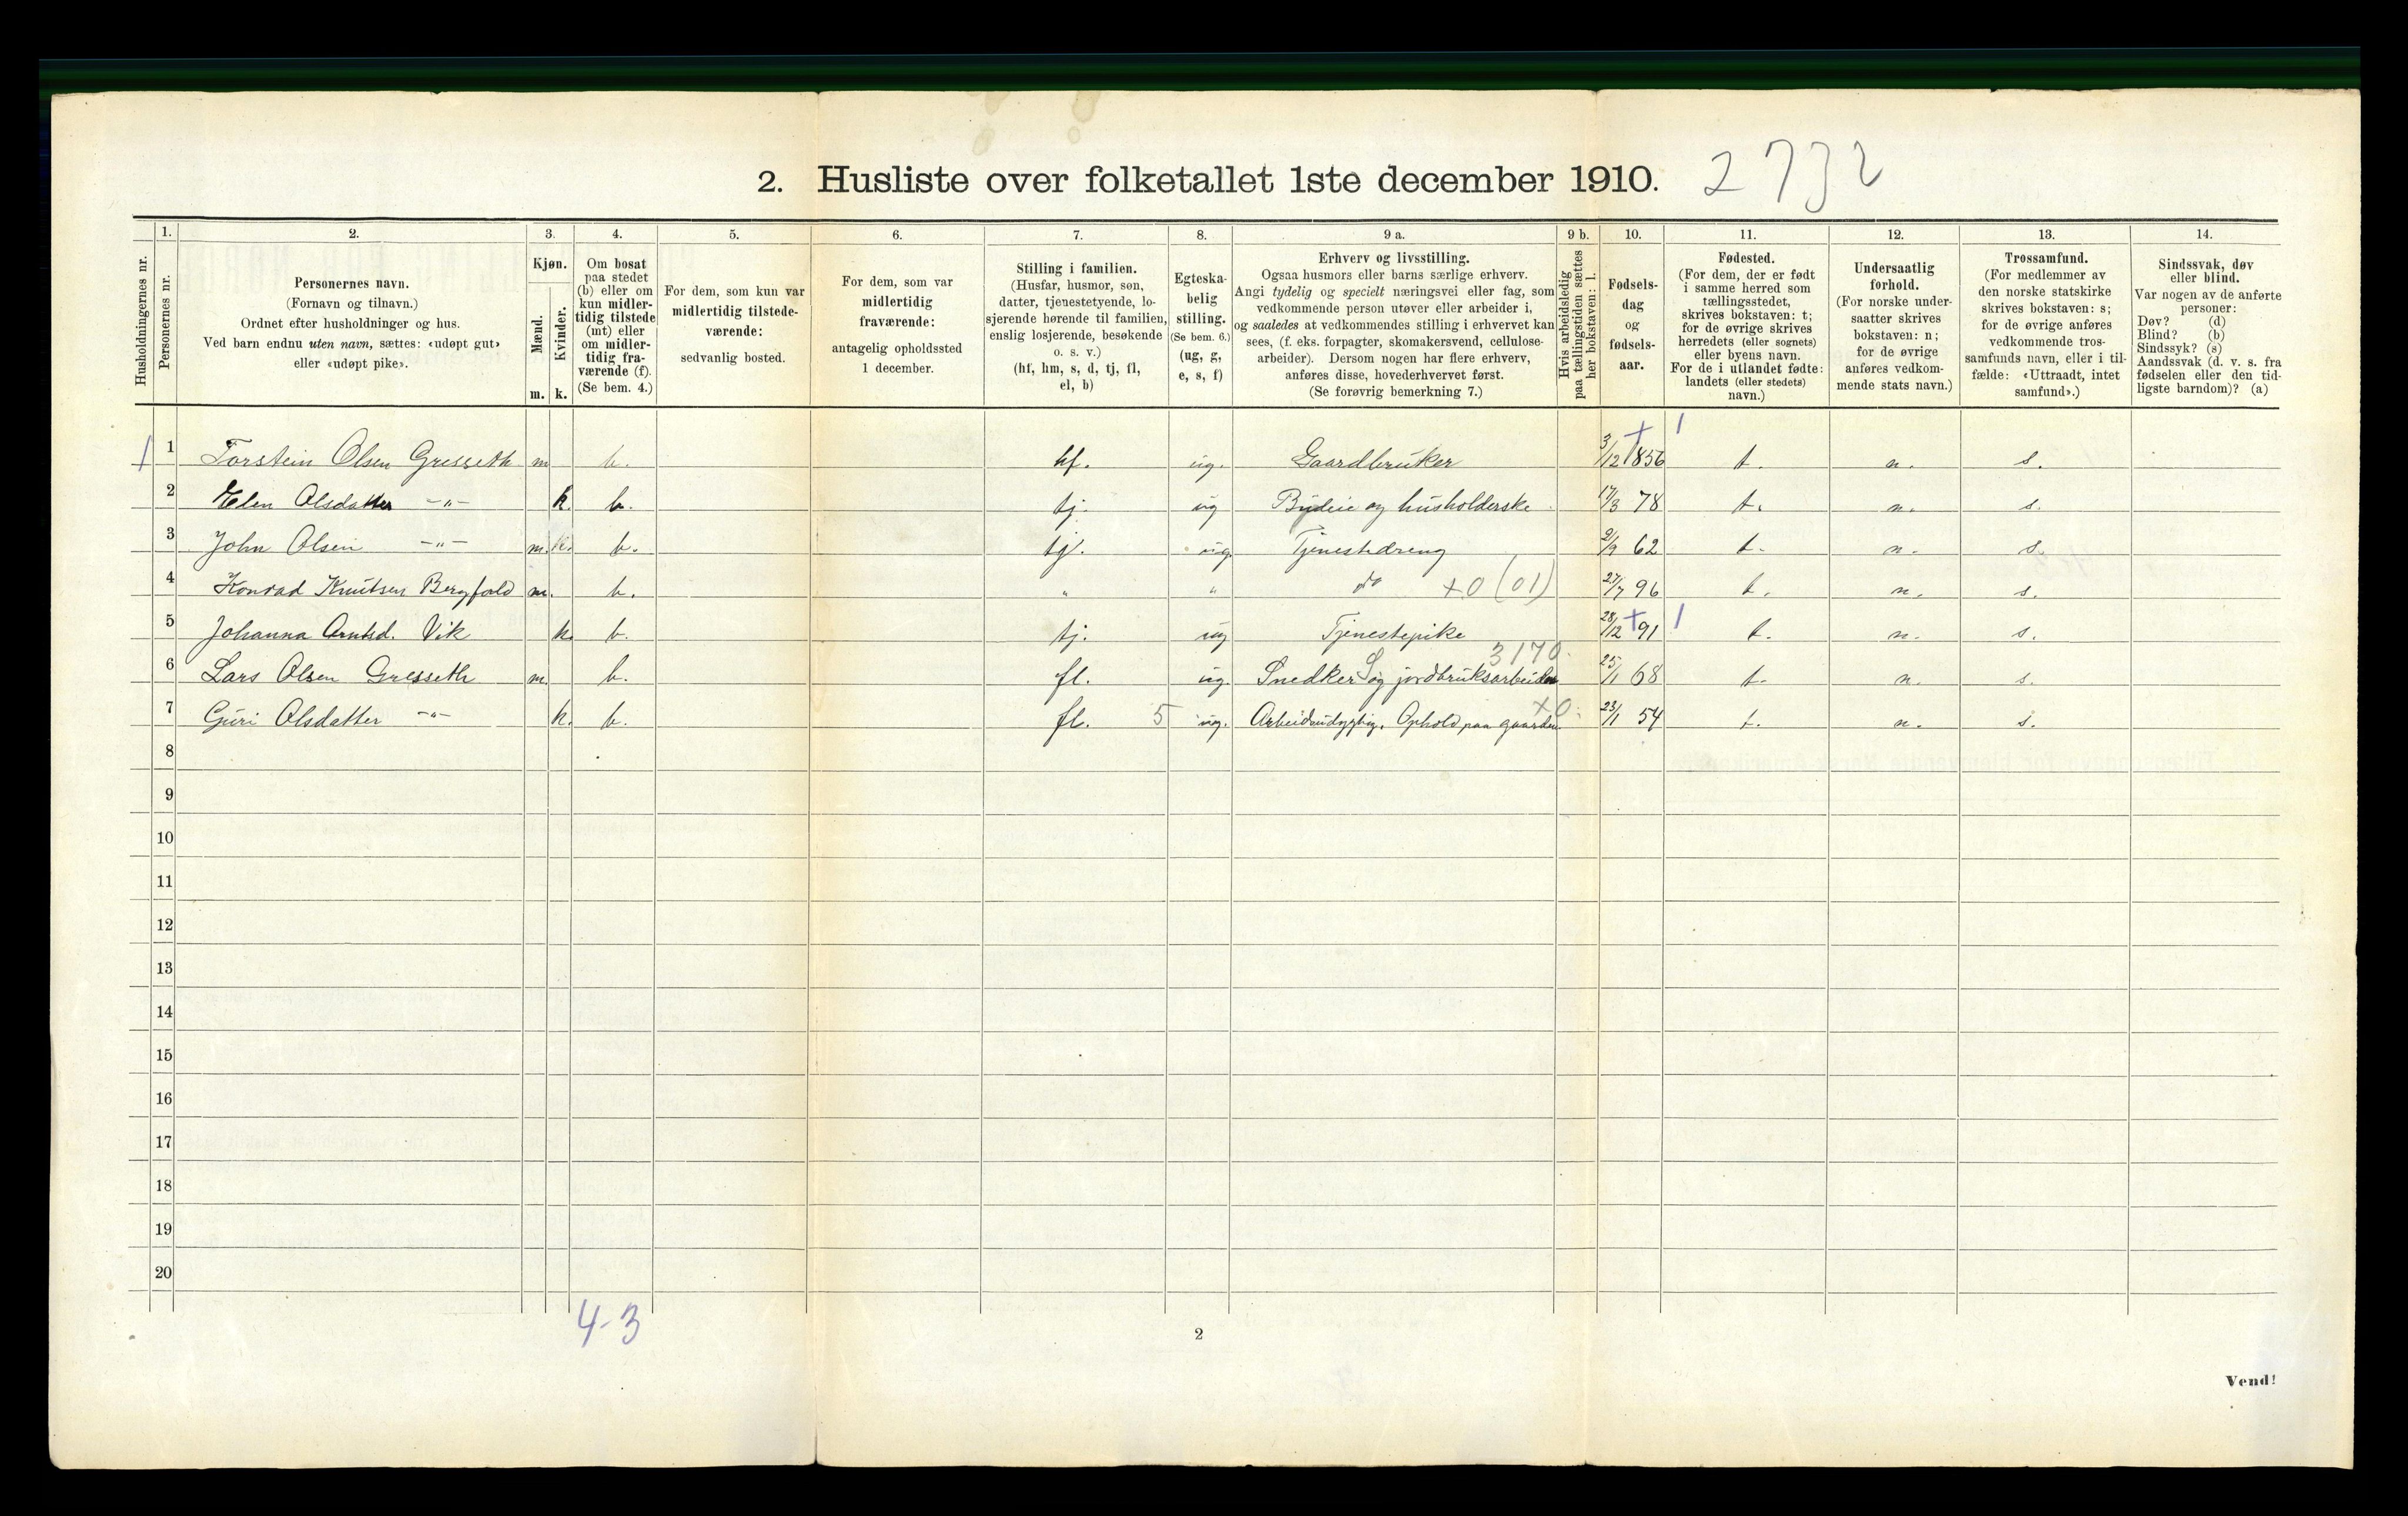 2. Husliste over folketallet 1ste december 1910. 2732
Husholdningernes nr.
1. Personernes nr.
2. Personernes navn.
(Fornavn og tilnavn.)
Ordnet efter husholdninger og hus.
Ved barn endnu uten navn, sættes: «udøpt gut»
eller «udøpt pike».
3. Kjøn.
Mænd. Kvinder.
m. k.
4. Om bosat
paa stedet
(b) eller om
kun midler-
tidig tilstede
(mt) eller
om midler-
tidig fra-
værende (f).
(Se bem. 4.)
5. For dem, som kun var
midlertidig tilstede-
værende:
sedvanlig bosted.
6. For dem, som var
midlertidig
fraværende:
antagelig opholdssted
1 december.
7. Stilling i familien.
(Husfar, husmor, søn,
datter, tjenestetyende, lo-
sjerende hørende til familien,
enslig losjerende, besøkende
o. s. v.)
(hf, hm, s, d, tj, fl,
el, b)
8. Egteska-
belig
stilling.
(Se bem. 6.)
(ug, g,
e, s, f)
9 a. Erhverv og livsstilling.
Ogsaa husmors eller barns særlige erhverv.
Angi tydelig og specielt næringsvei eller fag, som
vedkommende person utøver eller arbeider i,
og saaledes at vedkommendes stilling i erhvervet kan
sees, (f. eks. forpagter, skomakersvend, cellulose-
arbeider). Dersom nogen har flere erhverv,
anføres disse, hovederhvervet først.
(Se forøvrig bemerkning 7.)
9 b. Hvis arbeidsledig
paa tællingstiden sættes
her bokstaven: l.
10. Fødsels-
dag
og
fødsels-
aar.
11. Fødested.
(For dem, der er født
i samme herred som
tællingsstedet,
skrives bokstaven: t;
for de øvrige skrives
herredets (eller sognets)
eller byens navn.
For de i utlandet fødte:
landets (eller stedets)
navn.)
12. Undersaatlig
forhold.
(For norske under-
saatter skrives
bokstaven: n;
for de øvrige
anføres vedkom-
mende stats navn.)
13. Trossamfund.
(For medlemmer av
den norske statskirke
skrives bokstaven: s;
for de øvrige anføres
vedkommende tros-
samfunds navn, eller i til-
fælde: «Uttraadt, intet
samfund».)
14. Sindssvak, døv
eller blind.
Var nogen av de anførte
personer:
Døv? (d)
Blind? (b)
Sindssyk? (s)
Aandssvak (d. v. s. fra
fødselen eller den tid-
ligste barndom)? (a)
1 1 Torstein Olsen Gresseth m b. hf. ug. Gaardbruker 3/12 1856 + 1 t. n. s.
2 Elen Olsdatter -"- k. b. tj. ug Budeie og husholderske 17/3 78 t. n. s.
3 John Olsen -"- m. k. b. tj. ug. Tjenestedreng 2/9 62 t. n. s.
4 Konrad Knutsen Bergfald m. b. " " do +0 (01) 27/7 96 t. n. s.
5 Johanna Arntsd. Vik k. b. tj. ug Tjenestepike 28/12 + 91 1 t. n. s.
6 Lars Olsen Gresseth m. b. fl. ug. Snedker S og jordbruksarbeider 3170 25/1 68 t. n. s.
7 Guri Olsdatter -"- k. b. fl. 5 ug. Arbeidsudygtig, Ophold paa gaarden +0 23/1 54 t. n. s.
8
9
10
11
12
13
14
15
16
17
18
19
20
4-3
2
Vend!